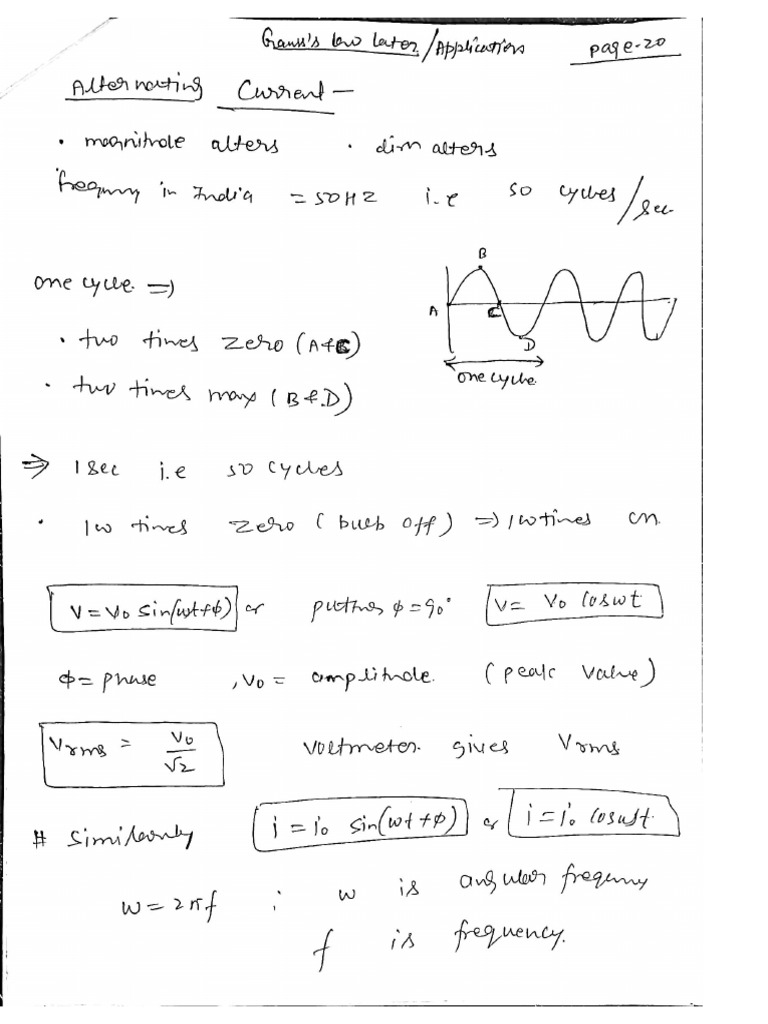 Gauss's law later/Applications page-20
Alternating Current —
• magnitude alters • dirn alters
frequency in India = 50HZ i.e 50 cycles/sec.
B
A C
D
one cycle
one cycle ⇒)
• two times zero (A & C)
• two times max (B & D)
⇒ 1 sec i.e 50 cycles
• 100 times zero (bulb off) ⇒ 100 times on
V = V₀ sin(ωt+ϕ) or putting ϕ = 90° V = V₀ cosωt
ϕ = phase , V₀ = amplitude. (peak value)
Vrms = V₀/√2 voltmeter gives Vrms
# Similarly i = i₀ sin(ωt+ϕ) or i = i₀ cosωt
ω = 2πf ; ω is angular frequency
f is frequency.